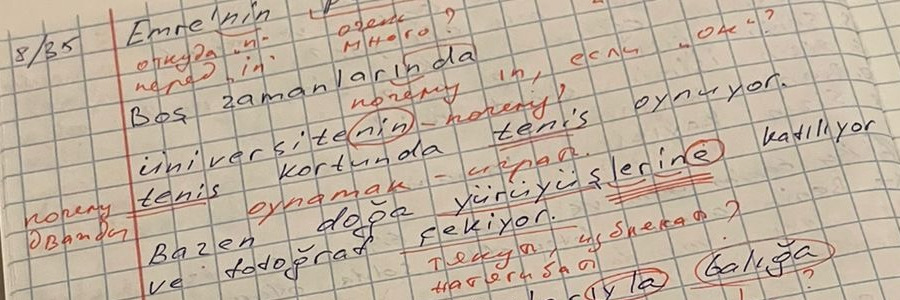 8/35
Emre'nin
откуда "н"
перед "in"
очень
много?
Boş zamanlarında
почему in, если "он"?
üniversitenin - почему?
tenis kortunda tenis oynuyor.
почему
дважды
oynamak - играть.
Bazen doğa yürüyüşlerine katılıyor
ve fotoğraf çekiyor.
?
balığa
?